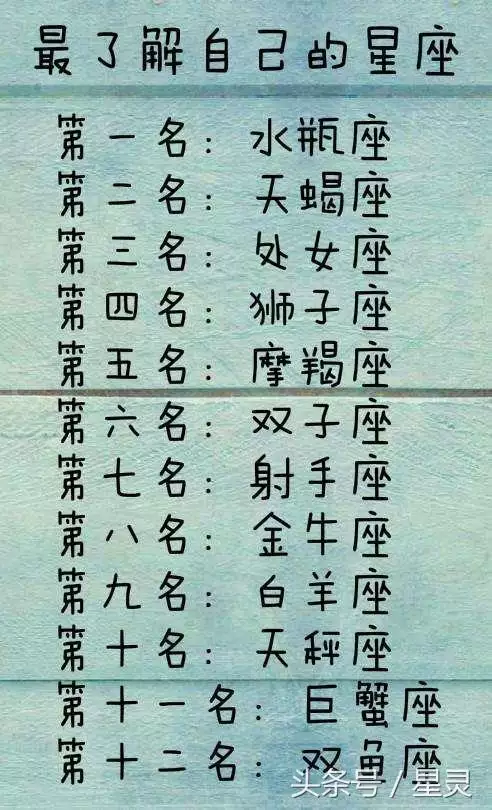 最了解自己的星座
第一名：水瓶座
第二名：天蝎座
第三名：处女座
第四名：狮子座
第五名：摩羯座
第六名：双子座
第七名：射手座
第八名：金牛座
第九名：白羊座
第十名：天秤座
第十一名：巨蟹座
第十二名：双鱼座
头条号／星灵